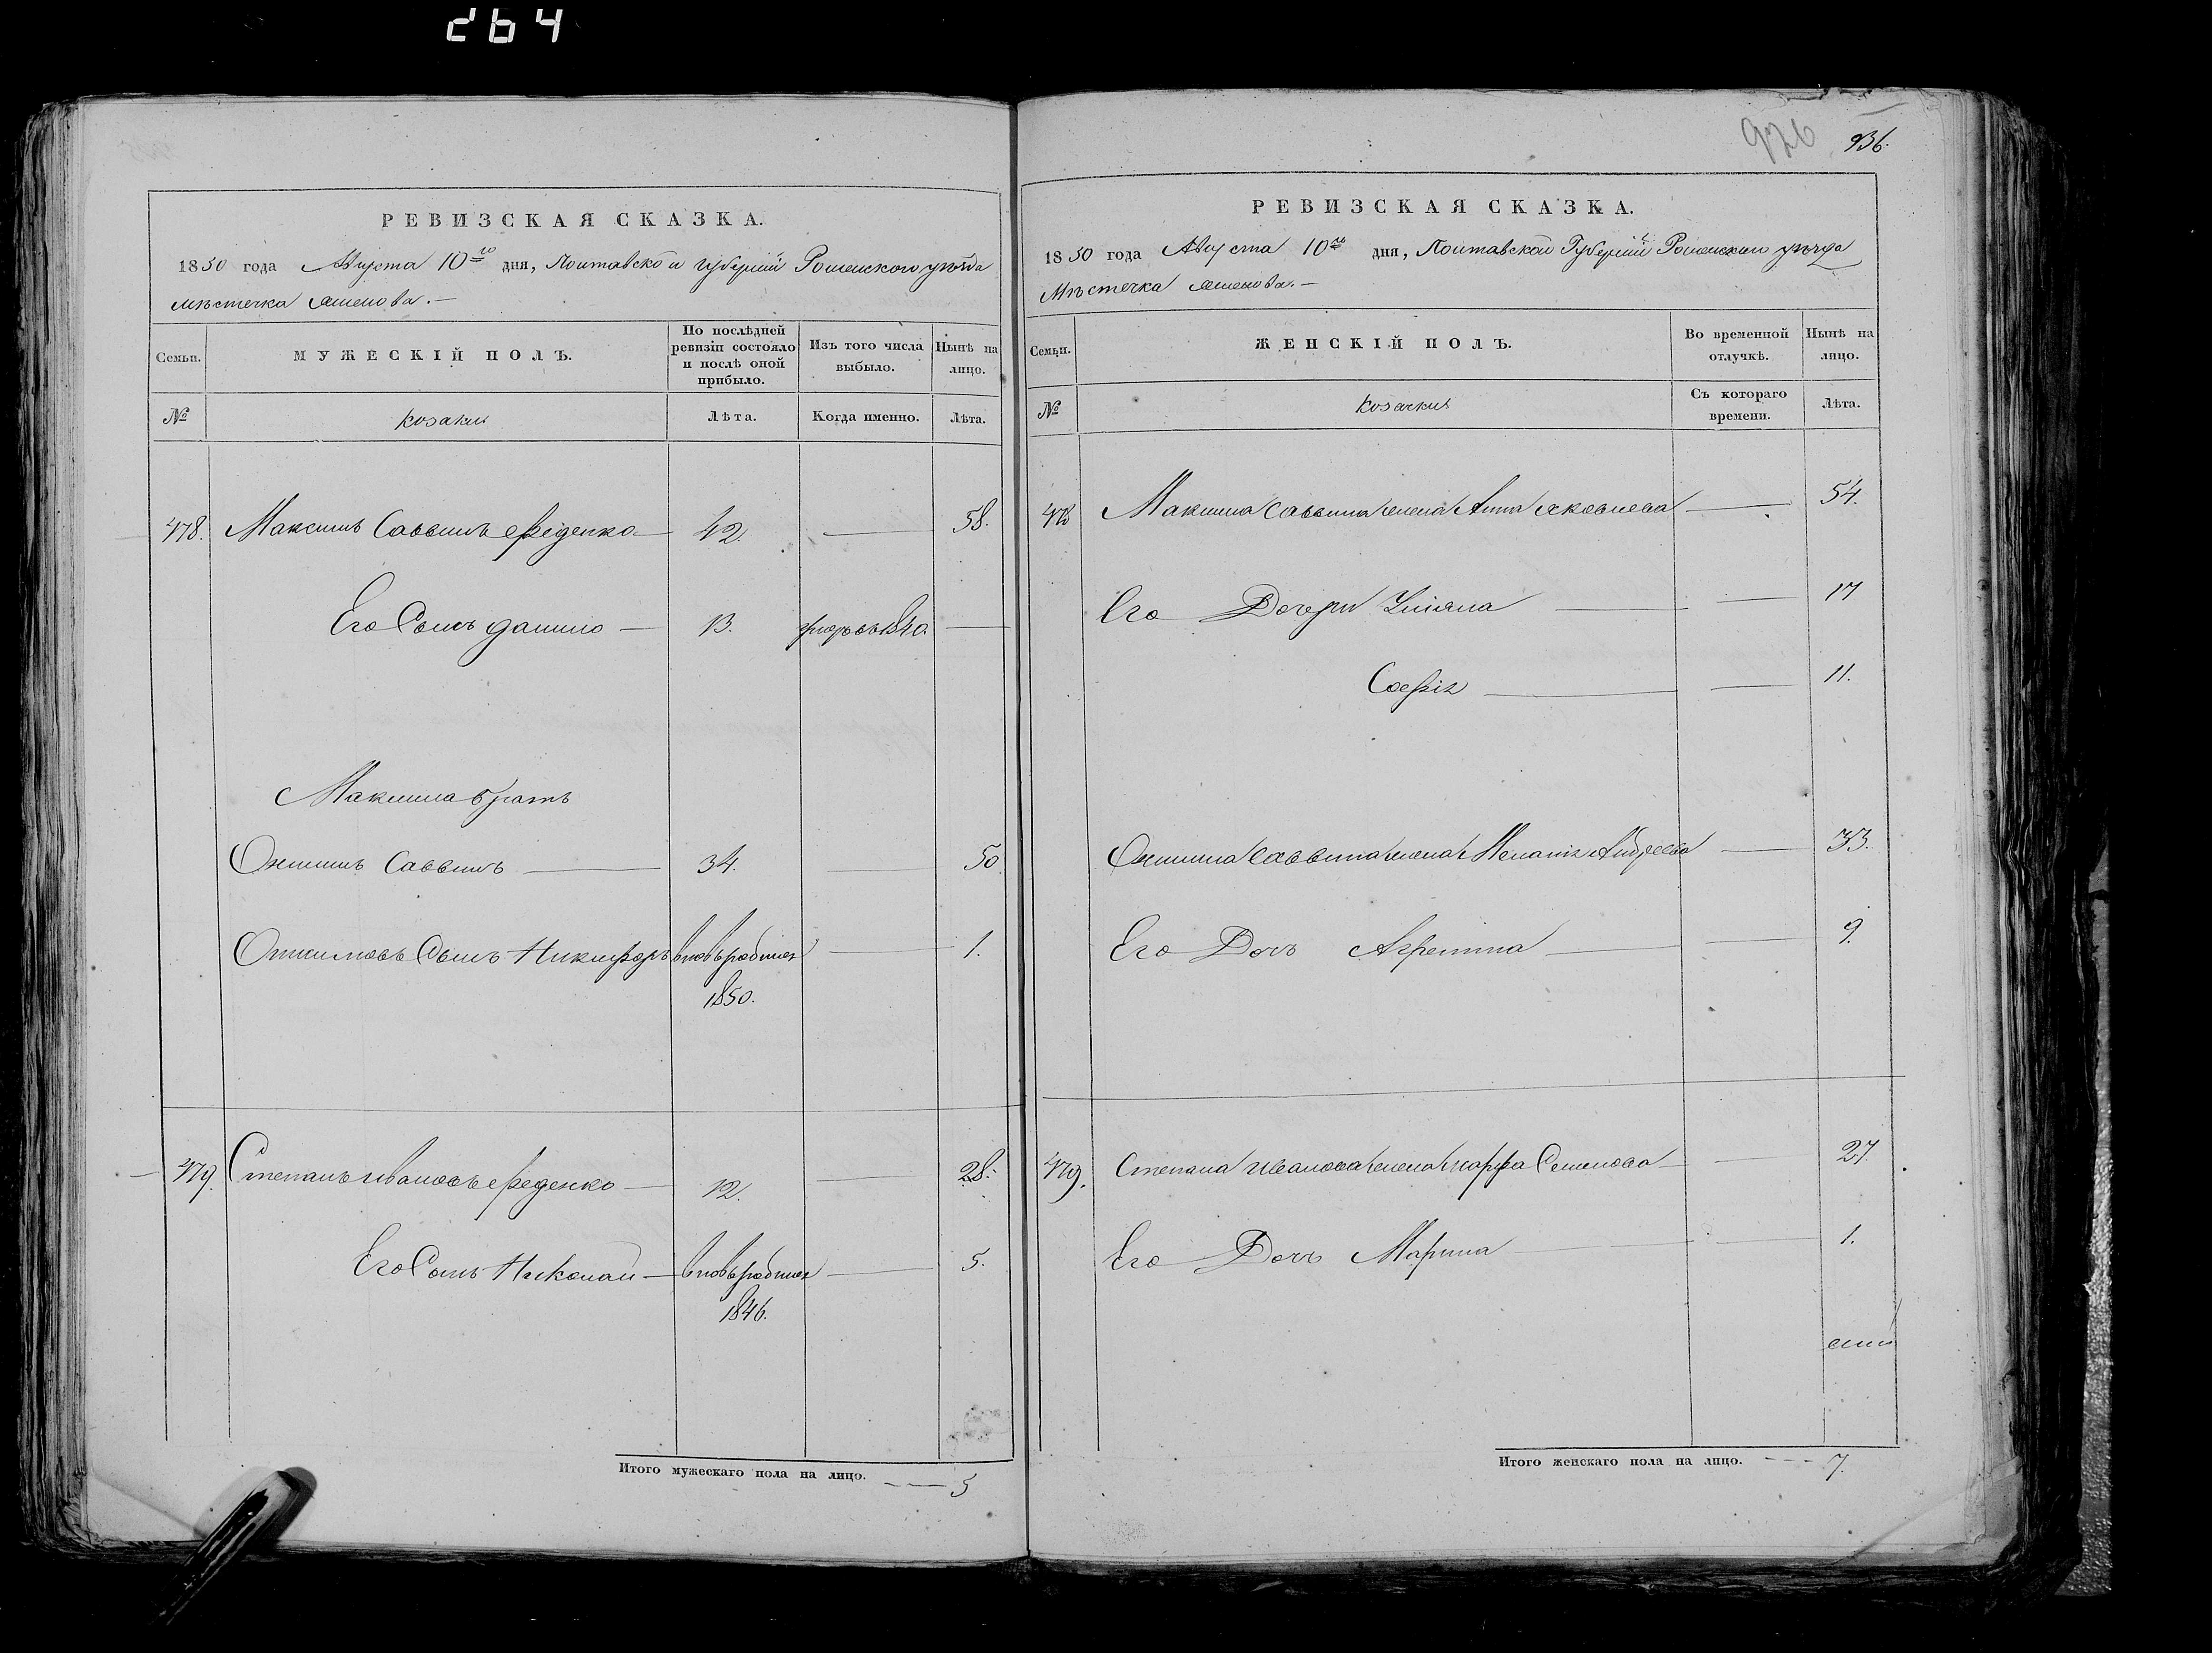 264
926
936.
РЕВИЗСКАЯ СКАЗКА.
1850 года Августа 10го дня, Полтавской губернiи Роменского уѣзда
мѣстечка Смелова.—
Семьи.
МУЖЕСКІЙ ПОЛЪ.
По послѣдней ревизіи состояло и послѣ оной прибыло.
Изъ того числа выбыло.
Нынѣ на лицо.
№
козаки
Лѣта.
Когда именно.
Лѣта.
478. Максимъ Саввинъ Феденко — 42. — 58.
Его Сынъ Данило — 13. 1840.
Максима братъ
Онисимъ Саввинъ — 34. — 50.
Онисимовъ Сынъ Никифоръ вновьрожден — 1.
1850.
479. Степанъ Ивановъ Феденко — 12. — 28.
Его Сынъ Николай — вновьрожден — 5.
1846.
Итого мужескаго пола на лицо. — 5
РЕВИЗСКАЯ СКАЗКА.
1850 года Августа 10го дня, Полтавской Губернiи Роменского уѣзда
Мѣстечка Смелова.—
Семьи.
ЖЕНСКІЙ ПОЛЪ.
Во временной отлучкѣ.
Нынѣ на лицо.
№
козачки
Съ котораго времени.
Лѣта.
478 Максима Саввина жена Анна Яковлева — 54.
Его Дочери Ульяна — 17
Софія — 11.
Онисима Саввина жена Меланія Андреева — 33.
Его Дочь Агрепина — 9.
479. Степана Иванова жена Марфа Семенова — 27.
Его Дочь Марина — 1.
Итого женскаго пола на лицо. — 7.